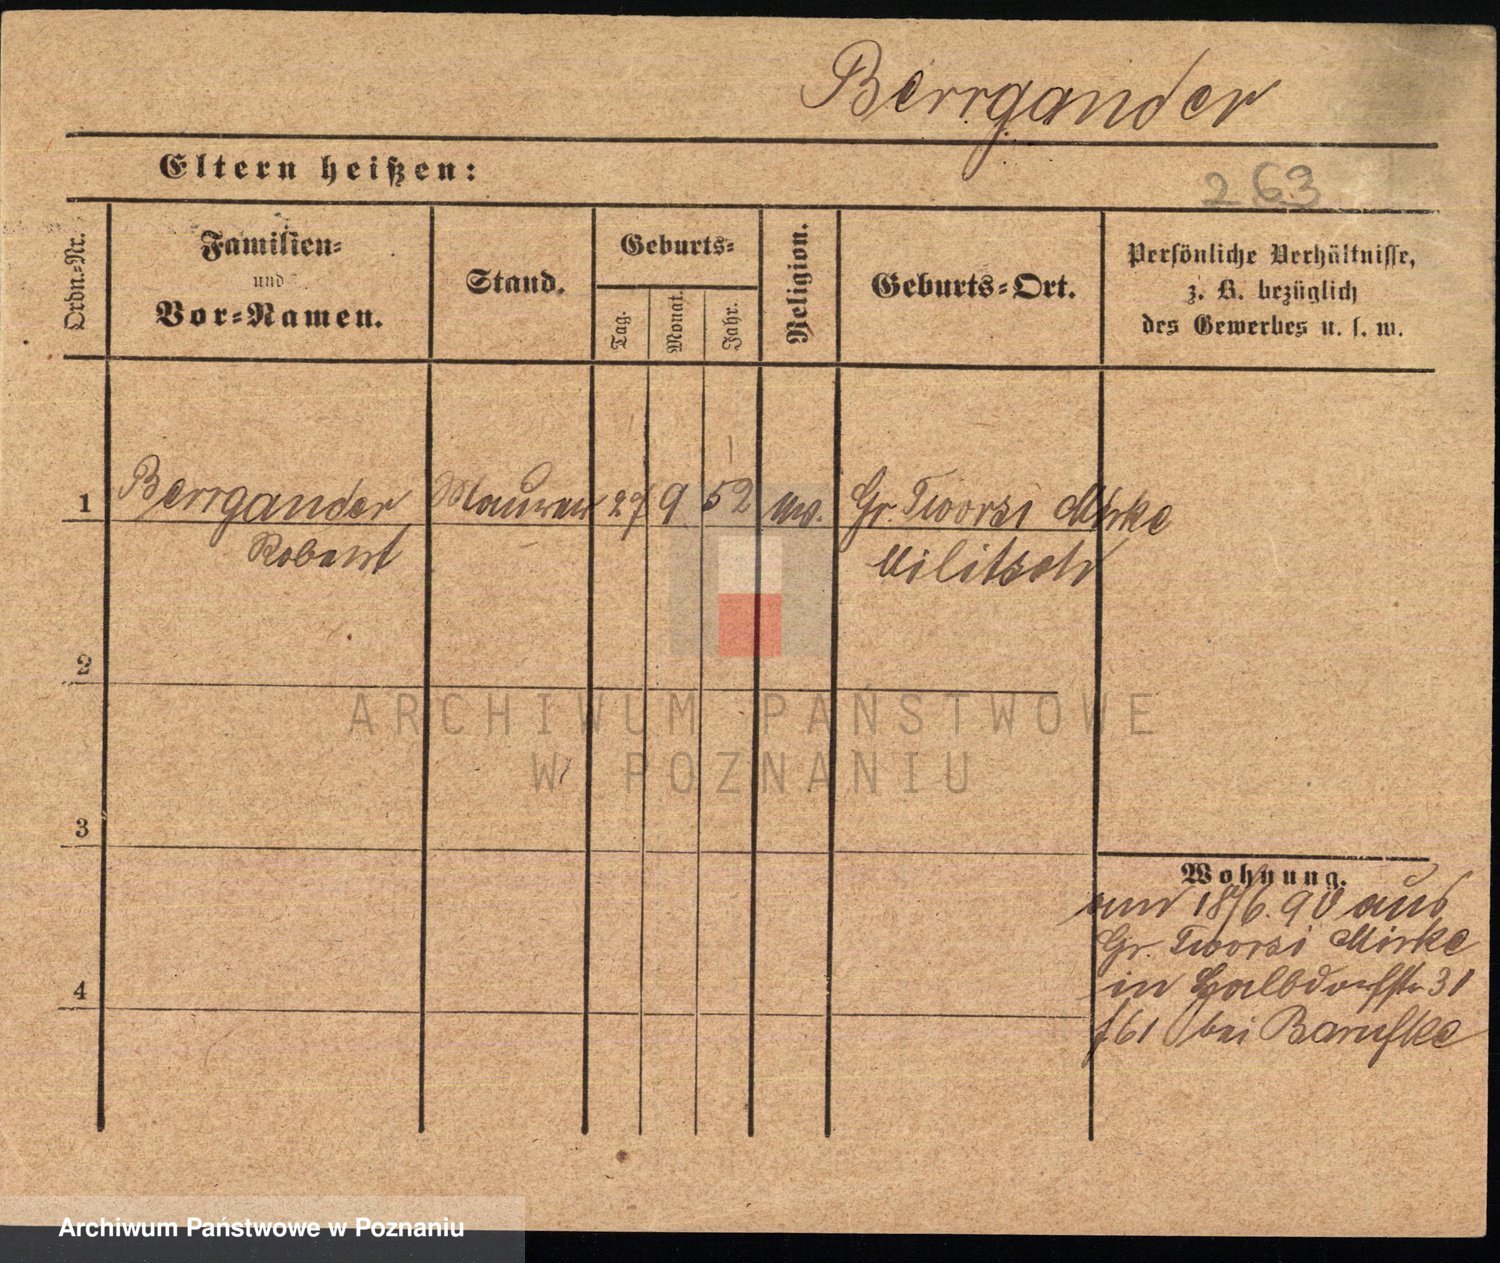 Berrgander
Eltern heißen:
263
Ordn.-Nr.
Familien-
und
Vor-Namen.
Stand.
Geburts-
Tag.
Monat.
Jahr.
Religion.
Geburts-Ort.
Persönliche Verhältnisse,
z. B. bezüglich
des Gewerbes u. s. w.
1 Berrgander Maurer 27 9 52 ev. Gr. Tworsi Mirke
Robert Militsch
2
ARCHIWUM PAŃSTWOWE
W POZNANIU
3
Wohnung.
am 18/6. 90 aus
Gr. Tworsi Mirke
in Halbdorfstr 31
f61 bei Barufke
4
Archiwum Państwowe w Poznaniu